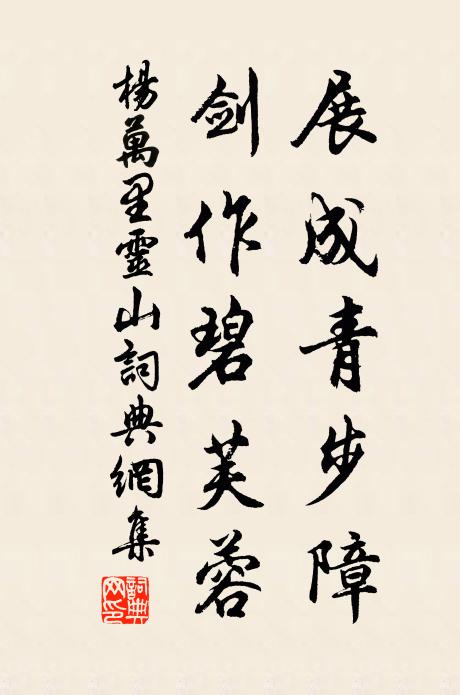 展成青步障
劍作碧芙蓉
楊萬里靈山詞典網集
詞典網印